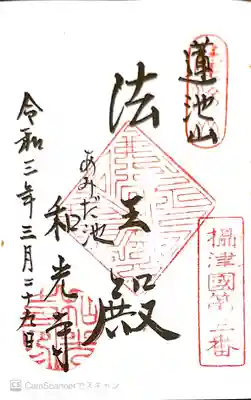 蓮池山
攝津國第二番
法王殿
あみだ池
和光寺
令和三年三月二十九日
CamScannerでスキャン